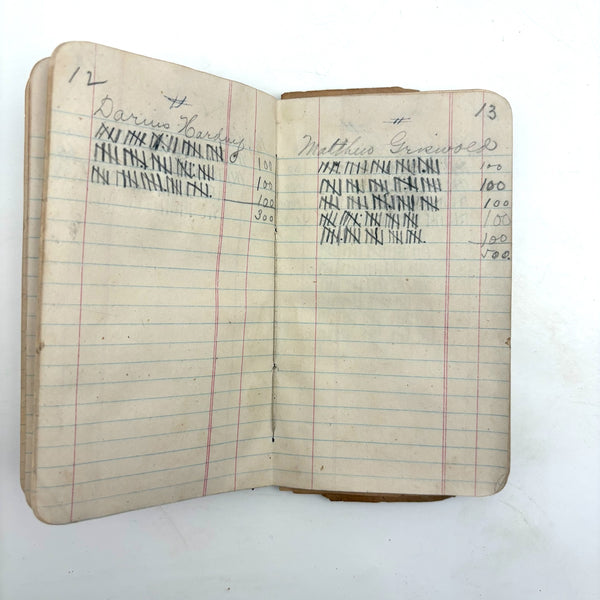 12
#
Darius Harding
100
100
100
300
13
#
Matthew Griswold
100
100
100
100
100
500.